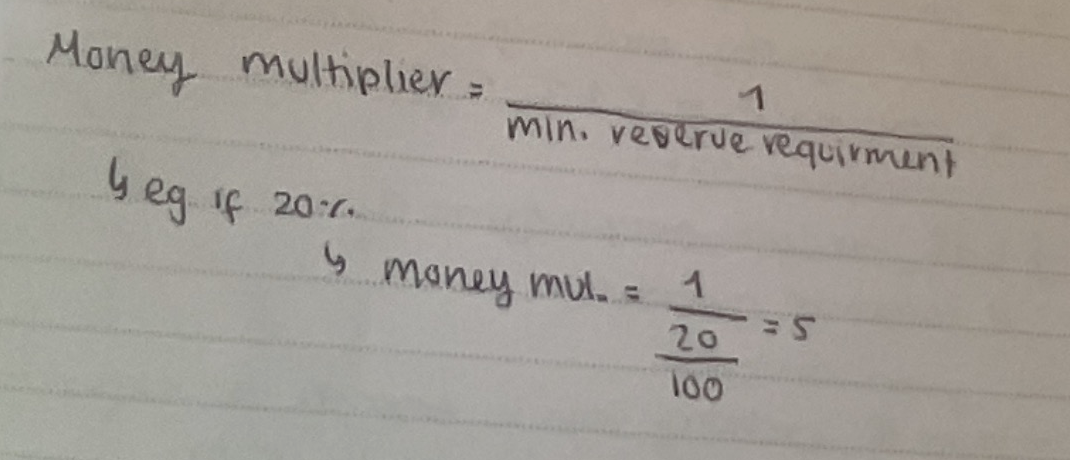 Money multiplier = 1 / min. reserve requirment
↳ eg if 20%
↳ money mul. = 1 / (20/100) = 5